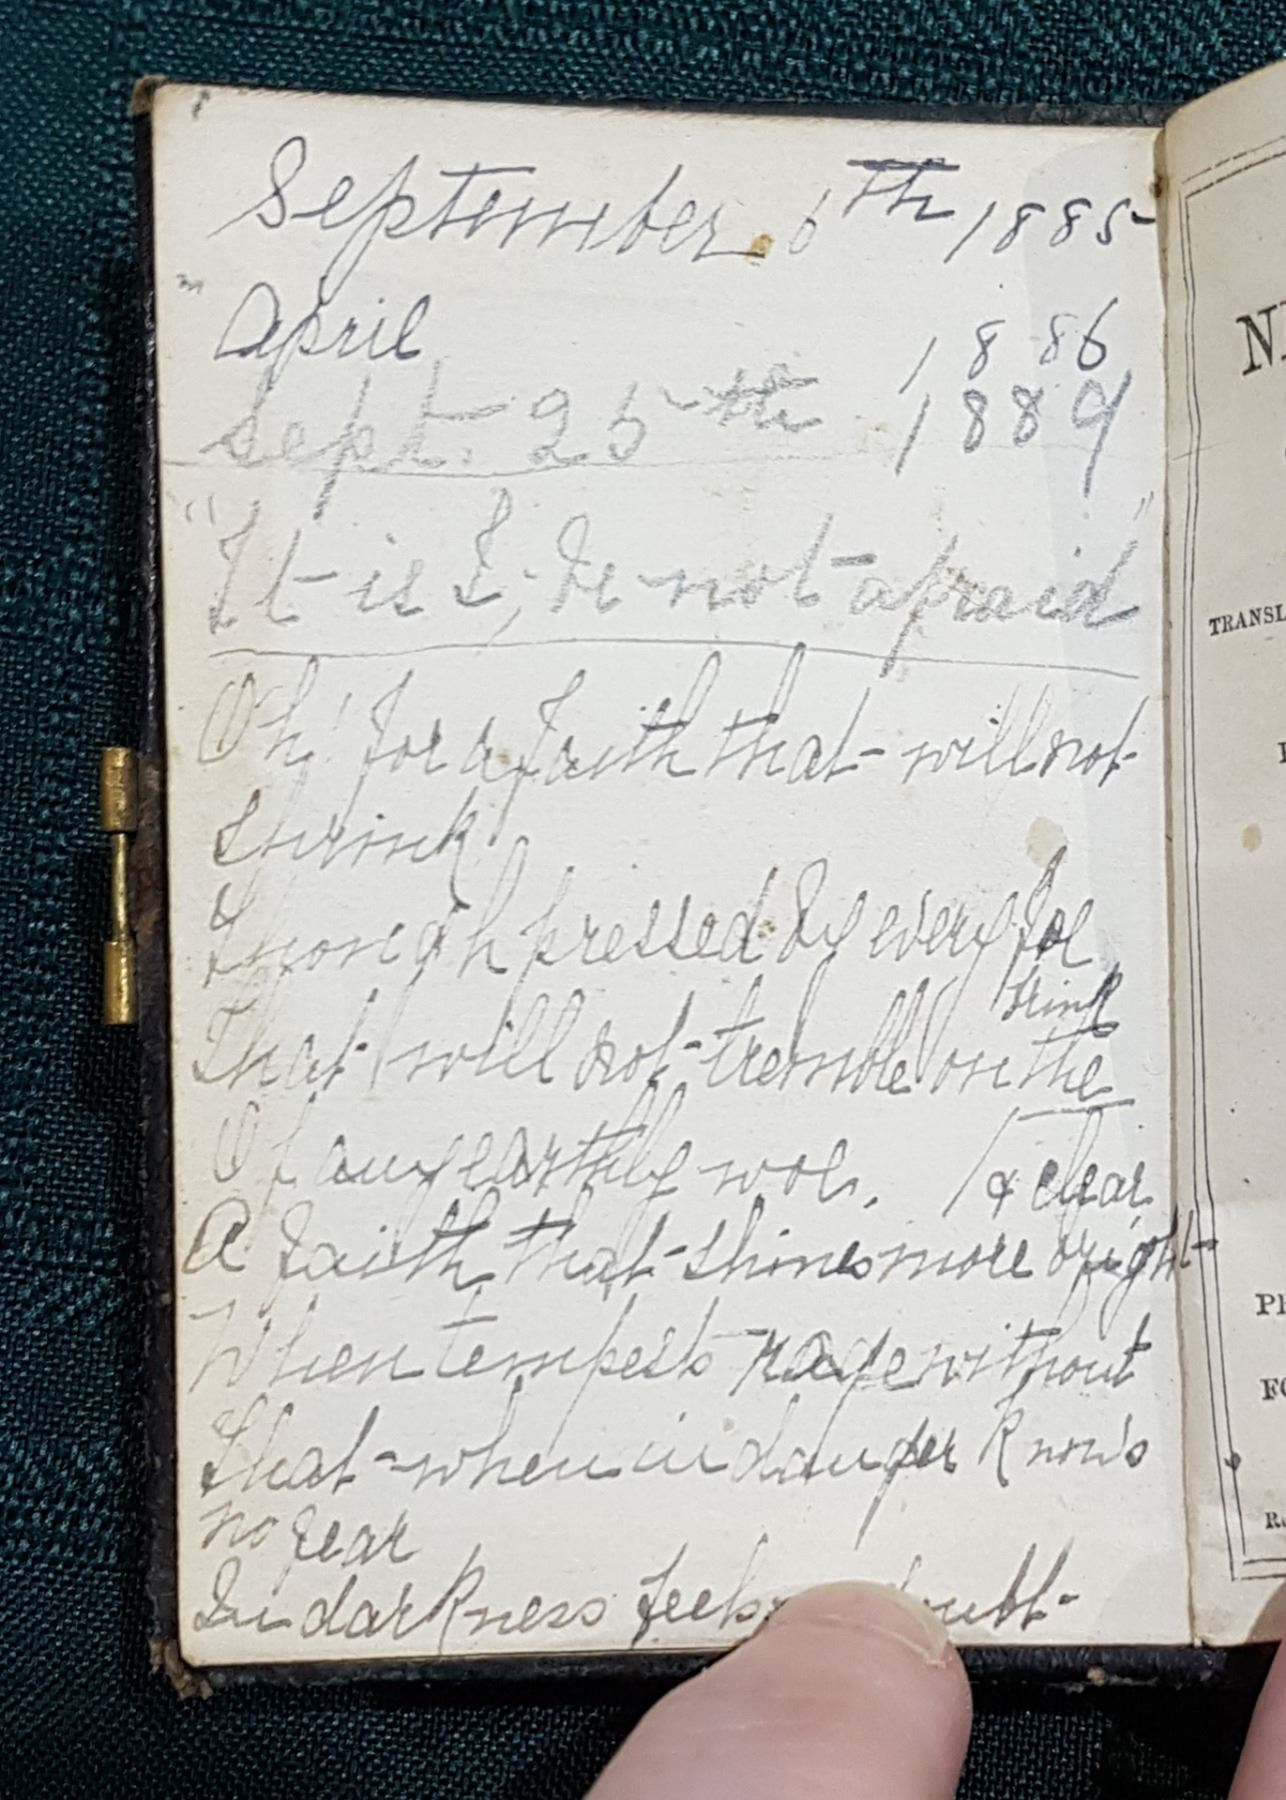 September 6th 1885
" April 1886
Sept. 25th 1889
"It is I; be not afraid"
Oh! for a faith that will not
shrink
Though pressed by every foe
brink
That will not tremble on the
Of any earthly woe.
& clear
A faith that shines more bright
When tempests rage without
That when in danger knows
no fear
In darkness feels
NE
TRANSL
PH
FO